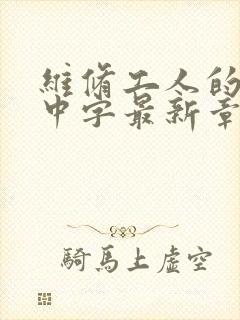 維修工人的
中字最新章
騎馬上虛空